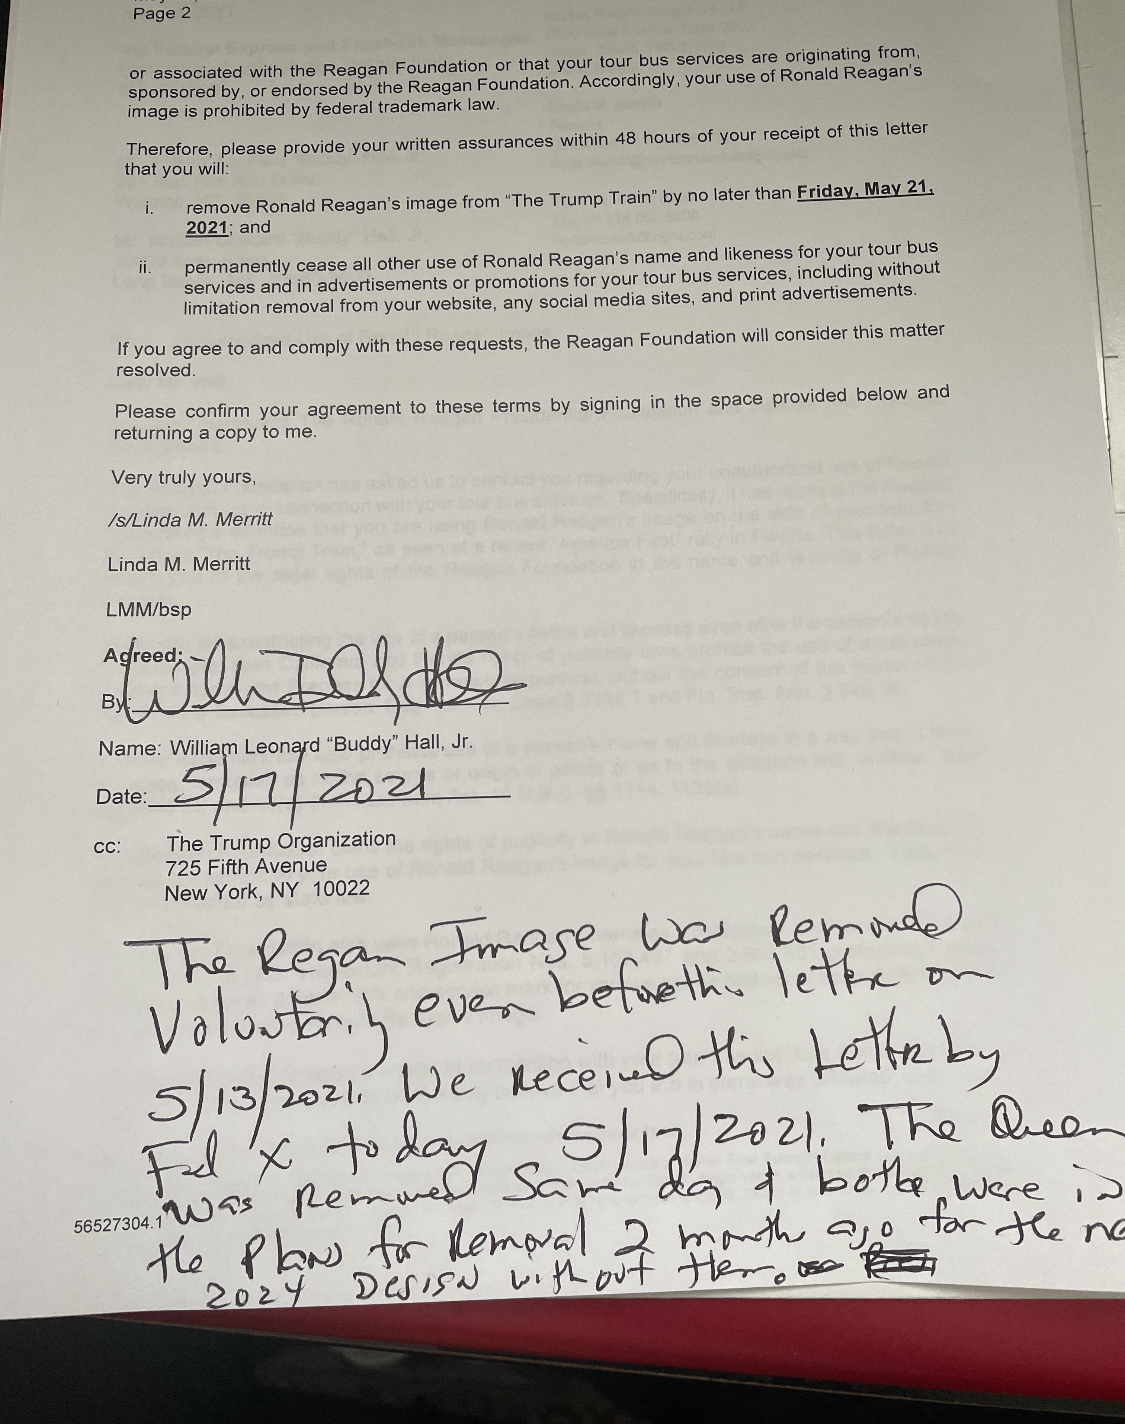 Page 2
or associated with the Reagan Foundation or that your tour bus services are originating from,
sponsored by, or endorsed by the Reagan Foundation. Accordingly, your use of Ronald Reagan's
image is prohibited by federal trademark law.
Therefore, please provide your written assurances within 48 hours of your receipt of this letter
that you will:
i. remove Ronald Reagan's image from “The Trump Train” by no later than Friday, May 21,
2021; and
ii. permanently cease all other use of Ronald Reagan's name and likeness for your tour bus
services and in advertisements or promotions for your tour bus services, including without
limitation removal from your website, any social media sites, and print advertisements.
If you agree to and comply with these requests, the Reagan Foundation will consider this matter
resolved.
Please confirm your agreement to these terms by signing in the space provided below and
returning a copy to me.
Very truly yours,
/s/Linda M. Merritt
Linda M. Merritt
LMM/bsp
Agreed:
By:
Name: William Leonard “Buddy” Hall, Jr.
Date: 5/17/2021
cc: The Trump Organization
725 Fifth Avenue
New York, NY 10022
The Regan Image was Removed
Voluntarily even before this letter on
5/13/2021. We received this Letter by
Fed X today 5/17/2021. The Queen
was Removed Same day & bothe were in
56527304.1
the plans for Removal 2 month ago for the
2024 DESIGN without them.